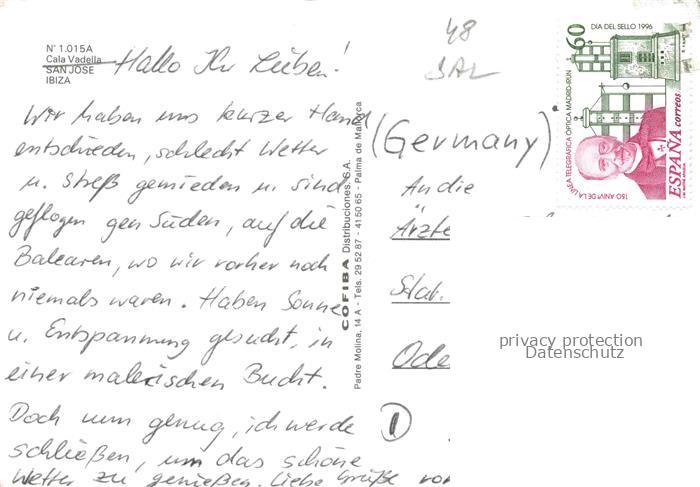 N° 1.015A
Cala Vadella
SAN JOSE
IBIZA
Hallo Ihr Lieben!
Wir haben uns kurzer Hand
entschieden, schlecht Wetter
u. Streß gemieden u. sind
geflogen gen Süden, auf die
Balearen, wo wir vorher noch
niemals waren. Haben Sonne
u. Entspannung gesucht, in
einer malerischen Bucht.
Doch nun genug, ich werde
schließen, um das schöne
Wetter zu genießen. Liebe Grüße von
COFIBA Distribuciones, S.A.
Padre Molina, 14 A - Tels. 29 52 87 - 41 50 65 - Palma de Mallorca
48
BAL
(Germany)
An die
Ärzte
Stat.
Ode
D
60
DIA DEL SELLO 1996
150 ANIVº DE LA LINEA TELEGRAFICA OPTICA MADRID-IRUN
ESPAÑA correos
privacy protection
Datenschutz